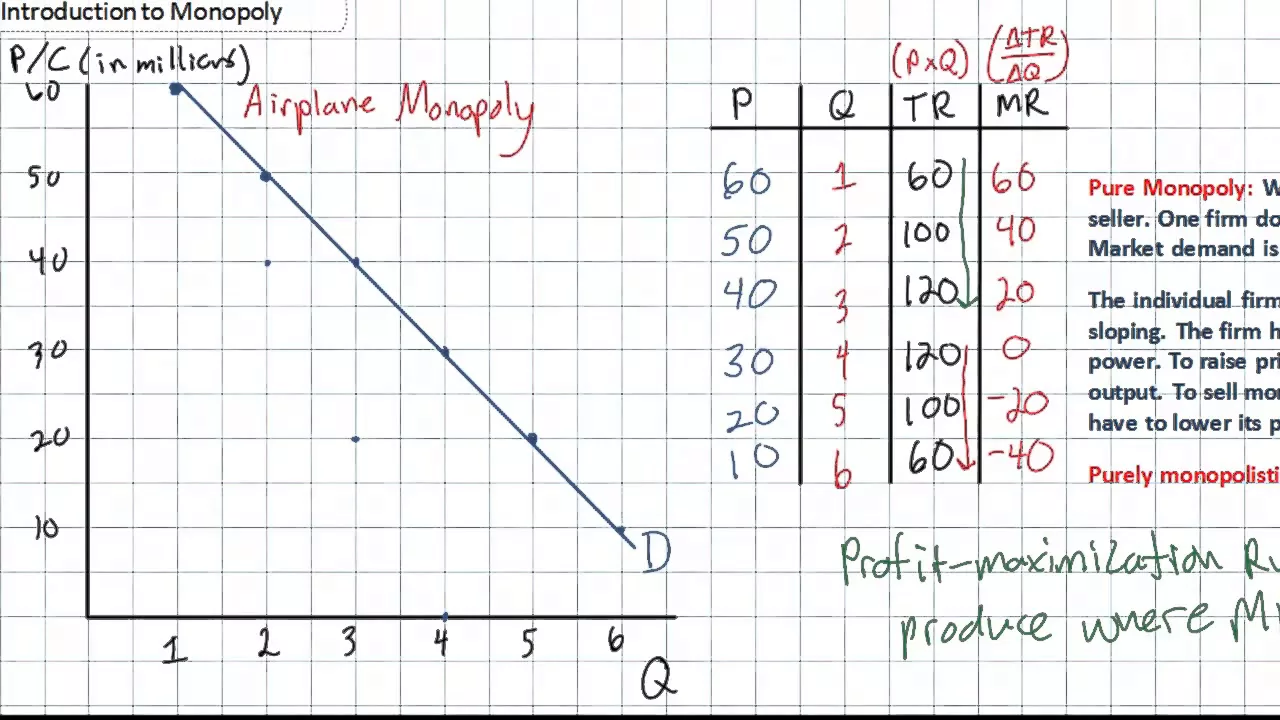 Introduction to Monopoly
P/C (in millions)
60
50
40
30
20
10
1 2 3 4 5 6
Q
Airplane Monopoly
D
(P×Q) (ΔTR/ΔQ)
P Q TR MR
60 1 60 60
50 2 100 40
40 3 120 20
30 4 120 0
20 5 100 -20
10 6 60 -40
Pure Monopoly: W
seller. One firm do
Market demand is
The individual firm
sloping. The firm h
power. To raise pri
output. To sell mo
have to lower its p
Purely monopolisti
Profit-maximization Ru
produce where M